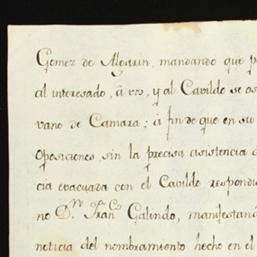 Gomez de Algarin, mandando que p
al interesado, â vos, y al Cavildo se os
vano de Camara; â fin de que en su
oposiciones, sin la precisa asistencia d
cia evacuada con el Cavildo respondi
no D.n Fran.co Galindo, manifestand
noticia del nombramiento hecho en el